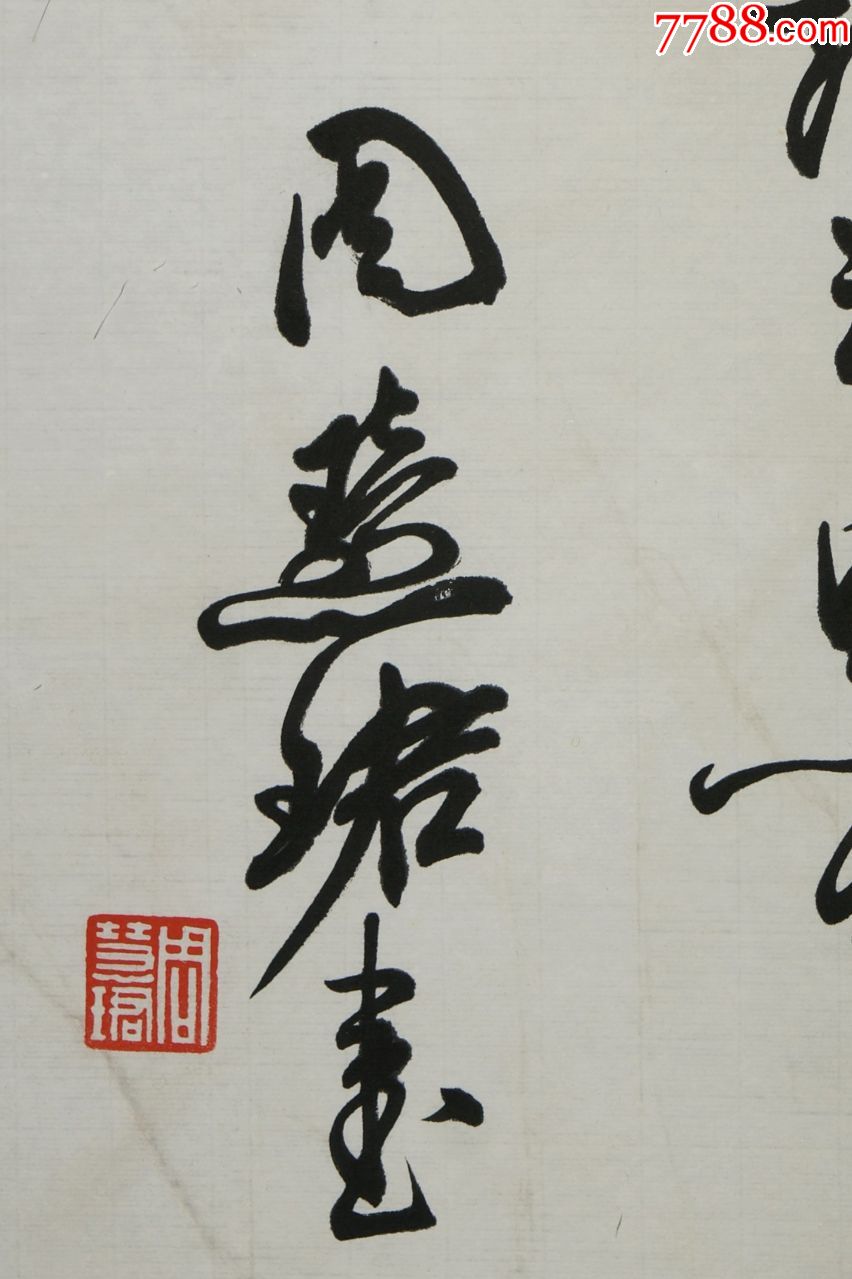 7788.com
周慧珺書
周慧珺